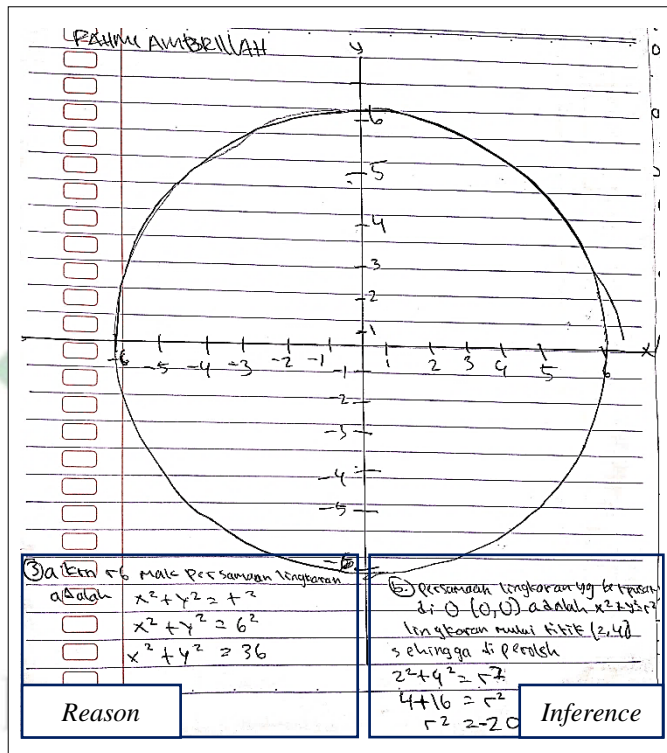 RAHMI AMBRILLAH
y
6
5
4
3
2
1
-6 -5 -4 -3 -2 -1 1 2 3 4 5 6 x
-1
-2
-3
-4
-5
-6
③ a krn r6 mak persamaan lingkaran
adalah x² + y² = r²
x² + y² = 6²
x² + y² = 36
Reason
b) persamaan lingkaran yg berpusat
di O (0,0) adalah x²+y²=r²
lingkaran mului titik (2,4)
sehingga di peroleh
2²+4²=r²
4+16 = r²
r² = 20
Inference